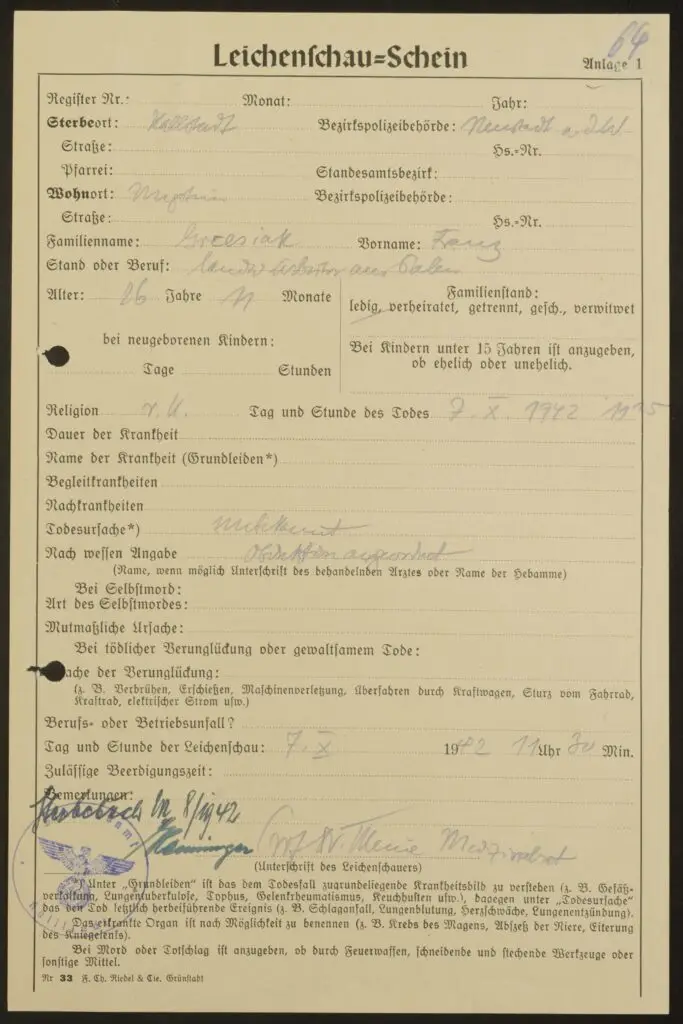 64
Leichenschau=Schein
Anlage 1
Register Nr.: Monat: Jahr:
Sterbeort: Hollstadt Bezirkspolizeibehörde: Neustadt
Straße: Hs.=Nr.
Pfarrei: Standesamtsbezirk:
Wohnort: Bezirkspolizeibehörde:
Straße: Hs.=Nr.
Familienname: Grzesiak Vorname: Franz
Stand oder Beruf: aus Polen
Alter: 26 Jahre 11 Monate
Familienstand:
ledig, verheiratet, getrennt, gesch., verwitwet
bei neugeborenen Kindern:
Tage Stunden
Bei Kindern unter 15 Jahren ist anzugeben,
ob ehelich oder unehelich.
Religion r. K. Tag und Stunde des Todes 7. X. 1942
Dauer der Krankheit
Name der Krankheit (Grundleiden*)
Begleitkrankheiten
Nachkrankheiten
Todesursache*) unbekannt
Nach wessen Angabe Obduktion angeordnet
(Name, wenn möglich Unterschrift des behandelnden Arztes oder Name der Hebamme)
Bei Selbstmord:
Art des Selbstmordes:
Mutmaßliche Ursache:
Bei tödlicher Verunglückung oder gewaltsamem Tode:
ache der Verunglückung:
(z. B. Verbrühen, Erschießen, Maschinenverletzung, Überfahren durch Kraftwagen, Sturz vom Fahrrad,
Kraftrad, elektrischer Strom usw.)
Berufs- oder Betriebsunfall?
Tag und Stunde der Leichenschau: 7. X 1942 11 Uhr 30 Min.
Zulässige Beerdigungszeit:
Bemerkungen:
1942
(Unterschrift des Leichenschauers)
*) Unter „Grundleiden“ ist das dem Todesfall zugrundeliegende Krankheitsbild zu verstehen (z. B. Gefäß-
verkalkung, Lungentuberkulose, Typhus, Gelenkrheumatismus, Keuchhusten usw.), dagegen unter „Todesursache“
das den Tod letztlich herbeiführende Ereignis (z. B. Schlaganfall, Lungenblutung, Herzschwäche, Lungenentzündung).
Das erkrankte Organ ist nach Möglichkeit zu benennen (z. B. Krebs des Magens, Abszeß der Niere, Eiterung
des Kniegelenks).
Bei Mord oder Totschlag ist anzugeben, ob durch Feuerwaffen, schneidende und stechende Werkzeuge oder
sonstige Mittel.
Nr 33 F. Ch. Riedel & Cie. Grünstadt